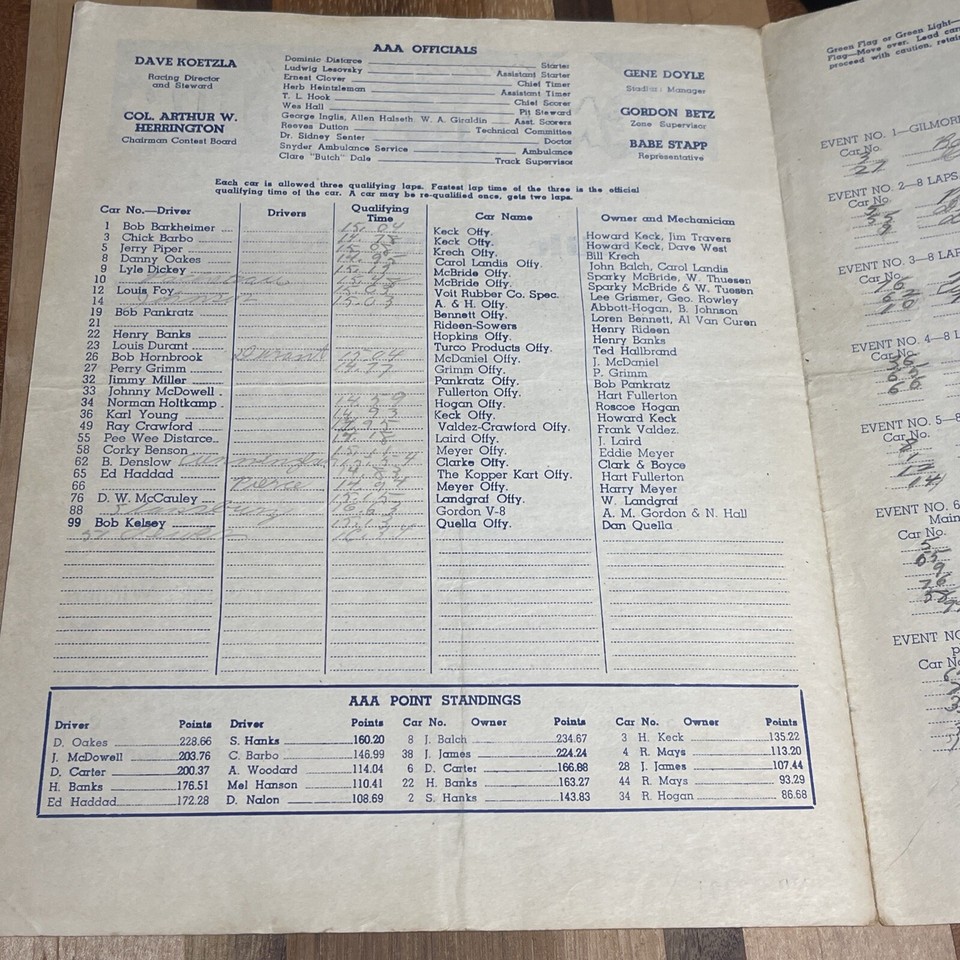 AAA OFFICIALS
DAVE KOETZLA
Racing Director
and Steward
COL. ARTHUR W.
HERRINGTON
Chairman Contest Board
Dominic Distarce Starter
Ludwig Lesovsky Assistant Starter
Ernest Clover Chief Timer
Herb Heintzleman Assistant Timer
T. L. Hook Chief Scorer
Wes Hall Pit Steward
George Inglis, Allen Halseth, W. A. Giraldin Asst. Scorers
Reeves Dutton Technical Committee
Dr. Sidney Senter Doctor
Snyder Ambulance Service Ambulance
Clare "Butch" Dale Track Supervisor
GENE DOYLE
Stadium Manager
GORDON BETZ
Zone Supervisor
BABE STAPP
Representative
Each car is allowed three qualifying laps. Fastest lap time of the three is the official
qualifying time of the car. A car may be re-qualified once, gets two laps.
Car No.—Driver Drivers Qualifying Time Car Name Owner and Mechanician
1 Bob Barkheimer 15.04 Keck Offy. Howard Keck, Jim Travers
3 Chick Barbo Keck Offy. Howard Keck, Dave West
5 Jerry Piper Krech Offy. Bill Krech
8 Danny Oakes Carol Landis Offy. John Balch, Carol Landis
9 Lyle Dickey McBride Offy. Sparky McBride, W. Thuesen
10 McBride Offy. Sparky McBride & W. Tuesen
12 Louis Foy Voit Rubber Co. Spec. Lee Grismer, Geo. Rowley
14 15.03 A. & H. Offy. Abbott-Hogan, B. Johnson
19 Bob Pankratz Bennett Offy. Loren Bennett, Al Van Curen
21 Rideen-Sowers Henry Rideen
22 Henry Banks Hopkins Offy. Henry Banks
23 Louis Durant Turco Products Offy. Ted Hallbrand
26 Bob Hornbrook Durant McDaniel Offy. J. McDaniel
27 Perry Grimm 14.77 Grimm Offy. P. Grimm
32 Jimmy Miller Pankratz Offy. Bob Pankratz
33 Johnny McDowell Fullerton Offy. Hart Fullerton
34 Norman Holtkamp 14.59 Hogan Offy. Roscoe Hogan
36 Karl Young 14.93 Keck Offy. Howard Keck
49 Ray Crawford 14.95 Valdez-Crawford Offy. Frank Valdez.
55 Pee Wee Distarce Laird Offy. J. Laird
58 Corky Benson Meyer Offy. Eddie Meyer
62 B. Denslow Clarke Offy. Clark & Boyce
65 Ed Haddad The Kopper Kart Offy. Hart Fullerton
66 Pierce 14.94 Meyer Offy. Harry Meyer
76 D. W. McCauley 15.15 Landgraf Offy. W. Landgraf
88 16.63 Gordon V-8 A. M. Gordon & N. Hall
99 Bob Kelsey Quella Offy. Dan Quella
AAA POINT STANDINGS
Driver Points Driver Points Car No. Owner Points Car No. Owner Points
D. Oakes 228.66 S. Hanks 160.20 8 J. Balch 234.67 3 H. Keck 135.22
J. McDowell 203.76 C. Barbo 146.99 38 J. James 224.24 4 R. Mays 113.20
D. Carter 200.37 A. Woodard 114.04 6 D. Carter 166.88 28 J. James 107.44
H. Banks 176.51 Mel Hanson 110.41 22 H. Banks 163.27 44 R. Mays 93.29
Ed Haddad 172.28 D. Nalon 108.69 2 S. Hanks 143.83 34 R. Hogan 86.68
Green Flag or Green Light—
Flag—Move over. Lead car
proceed with caution, retai
EVENT NO. 1—GILMOR
Car No.
27
EVENT NO. 2—8 LAPS
Car No.
EVENT NO. 3—8 LAP
Car No.
EVENT NO. 4—8 L
Car No.
EVENT NO. 5—8
Car No.
EVENT NO. 6
Main
Car No.
5
65
9
76
58
EVENT NO
Car No